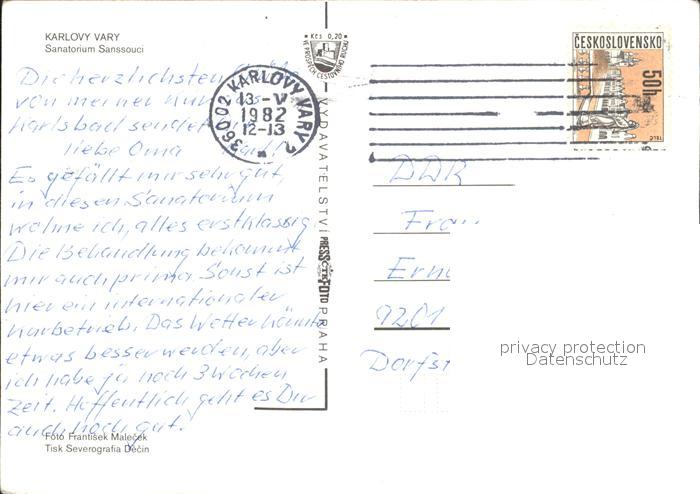 KARLOVY VARY
Sanatorium Sanssouci
Kčs 0,20
VE PROSPĚCH CESTOVNÍHO RUCHU
ČESKOSLOVENSKO
50h
TELČ
360 02 KARLOVY VARY 2
13.-V
1982
12-13
Die herzlichsten
von meiner Kur
Karlsbad sendet
liebe Oma
Es gefällt mir sehr gut,
in diesem Sanatorium
wohne ich, alles erstklassig.
Die Behandlung bekommt
mir auch prima. Sonst ist
hier ein internationaler
Kurbetrieb. Das Wetter könnte
etwas besser werden, aber
ich habe ja noch 3 Wochen
Zeit. Hoffentlich geht es Dir
auch noch gut.
VYDAVATELSTVÍ PRESSFOTO PRAHA
ČTK
DDR
Frau
9201
Dorfst
privacy protection
Datenschutz
Foto František Maleček
Tisk Severografia Děčín